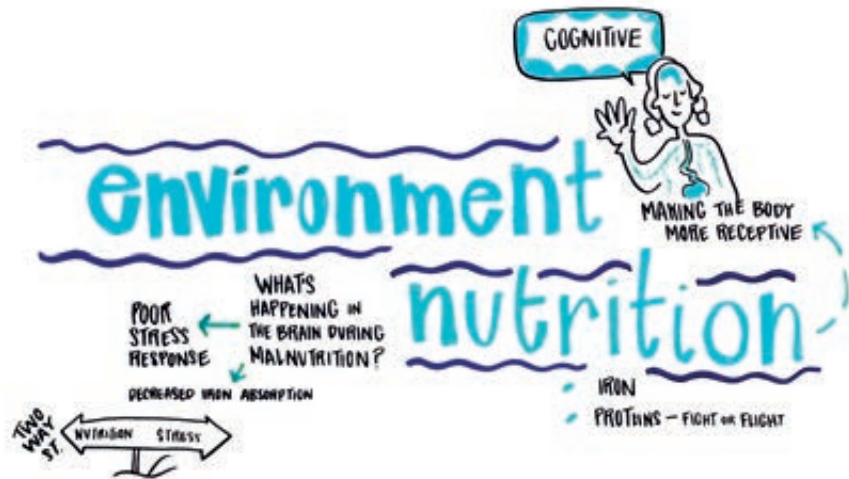 COGNITIVE
environment
MAKING THE BODY
MORE RECEPTIVE
nutrition
WHAT'S
HAPPENING IN
THE BRAIN DURING
MALNUTRITION?
POOR
STRESS
RESPONSE
DECREASED IRON ABSORPTION
IRON
PROTEINS – FIGHT OR FLIGHT
TWO
WAY
ST.
NUTRITION STRESS